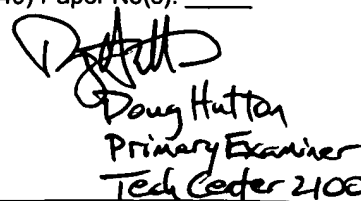 Paper No(s).
Doug Hutton
Primary Examiner
Tech Center 2100